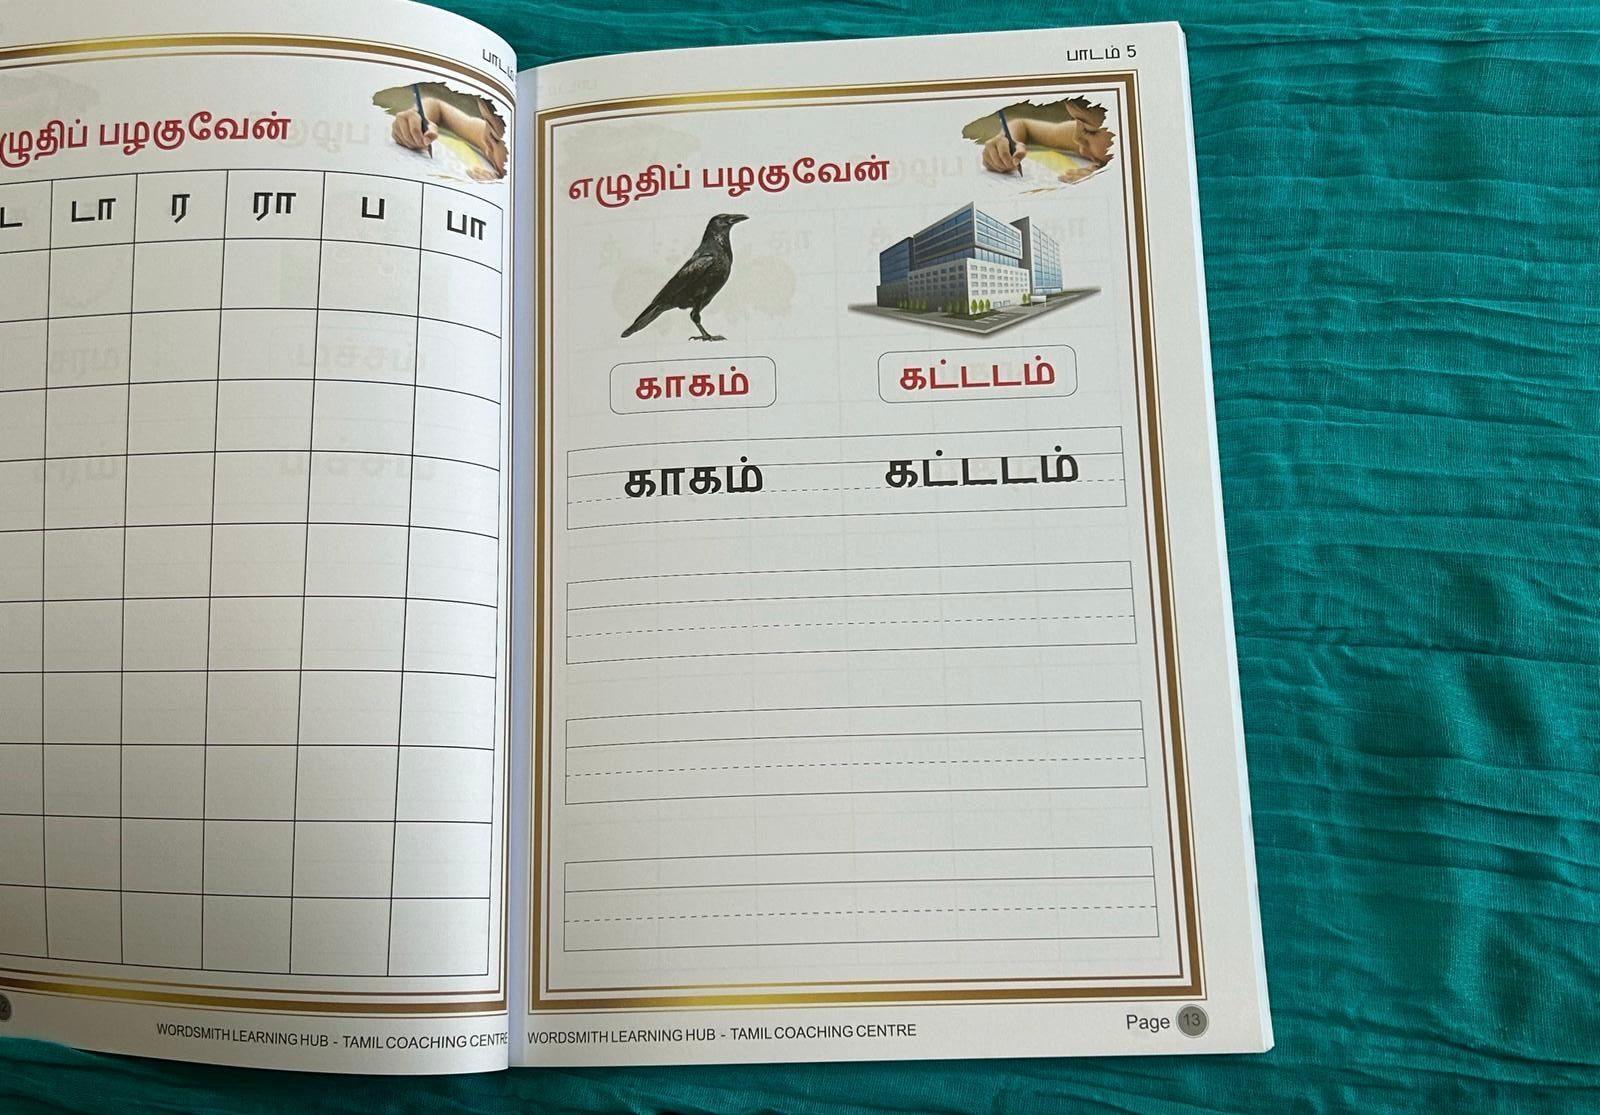 பழகுவேன்
டா ர ரா ப பா
WORDSMITH LEARNING HUB - TAMIL COACHING CENTRE
பாடம் 5
எழுதிப் பழகுவேன்
காகம் கட்டடம்
காகம் கட்டடம்
WORDSMITH LEARNING HUB - TAMIL COACHING CENTRE Page 13